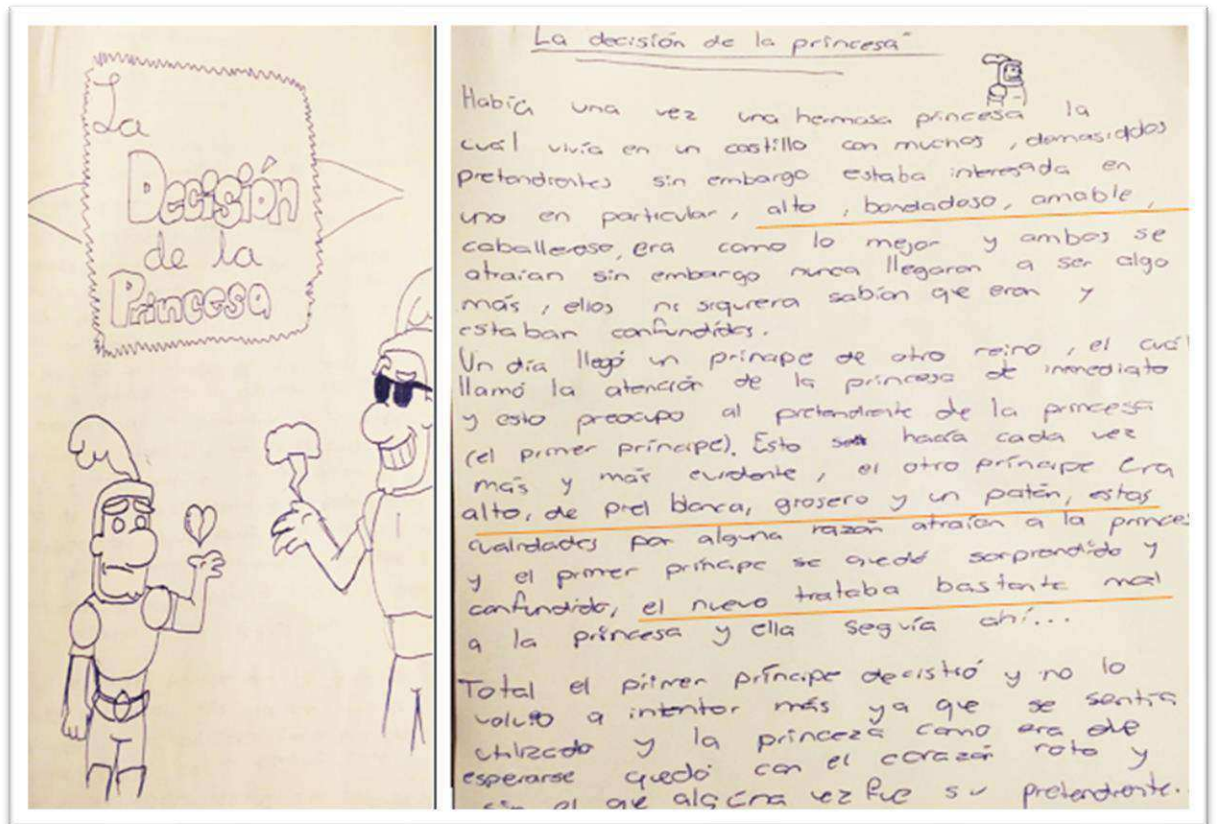 La
Decisión
de la
Princesa
La decisión de la princesa"
Había una vez una hermosa princesa la
cuál vivía en un castillo con muchos, demasiados
pretendientes sin embargo estaba interesada en
uno en particular, alto, bondadoso, amable,
caballeroso, era como lo mejor y ambos se
atraían sin embargo nunca llegaron a ser algo
más, ellos ni siquiera sabían que eran y
estaban confundidos.
Un día llegó un príncipe de otro reino, el cuál
llamó la atención de la princesa de inmediato
y esto preocupo al pretendiente de la princesa
(el primer príncipe). Esto se hacía cada vez
más y más evidente, el otro príncipe era
alto, de piel blanca, grosero y un patán, estas
cualidades por alguna razón atraían a la princes
y el primer príncipe se quedó sorprendido y
confundido, el nuevo trataba bastante mal
a la princesa y ella seguía ahí...
Total el primer príncipe decistió y no lo
volvió a intentar más ya que se sentía
utilizado y la princeza como era de
esperarse quedó con el corazón roto y
sin el que alguna vez fue su pretendiente.